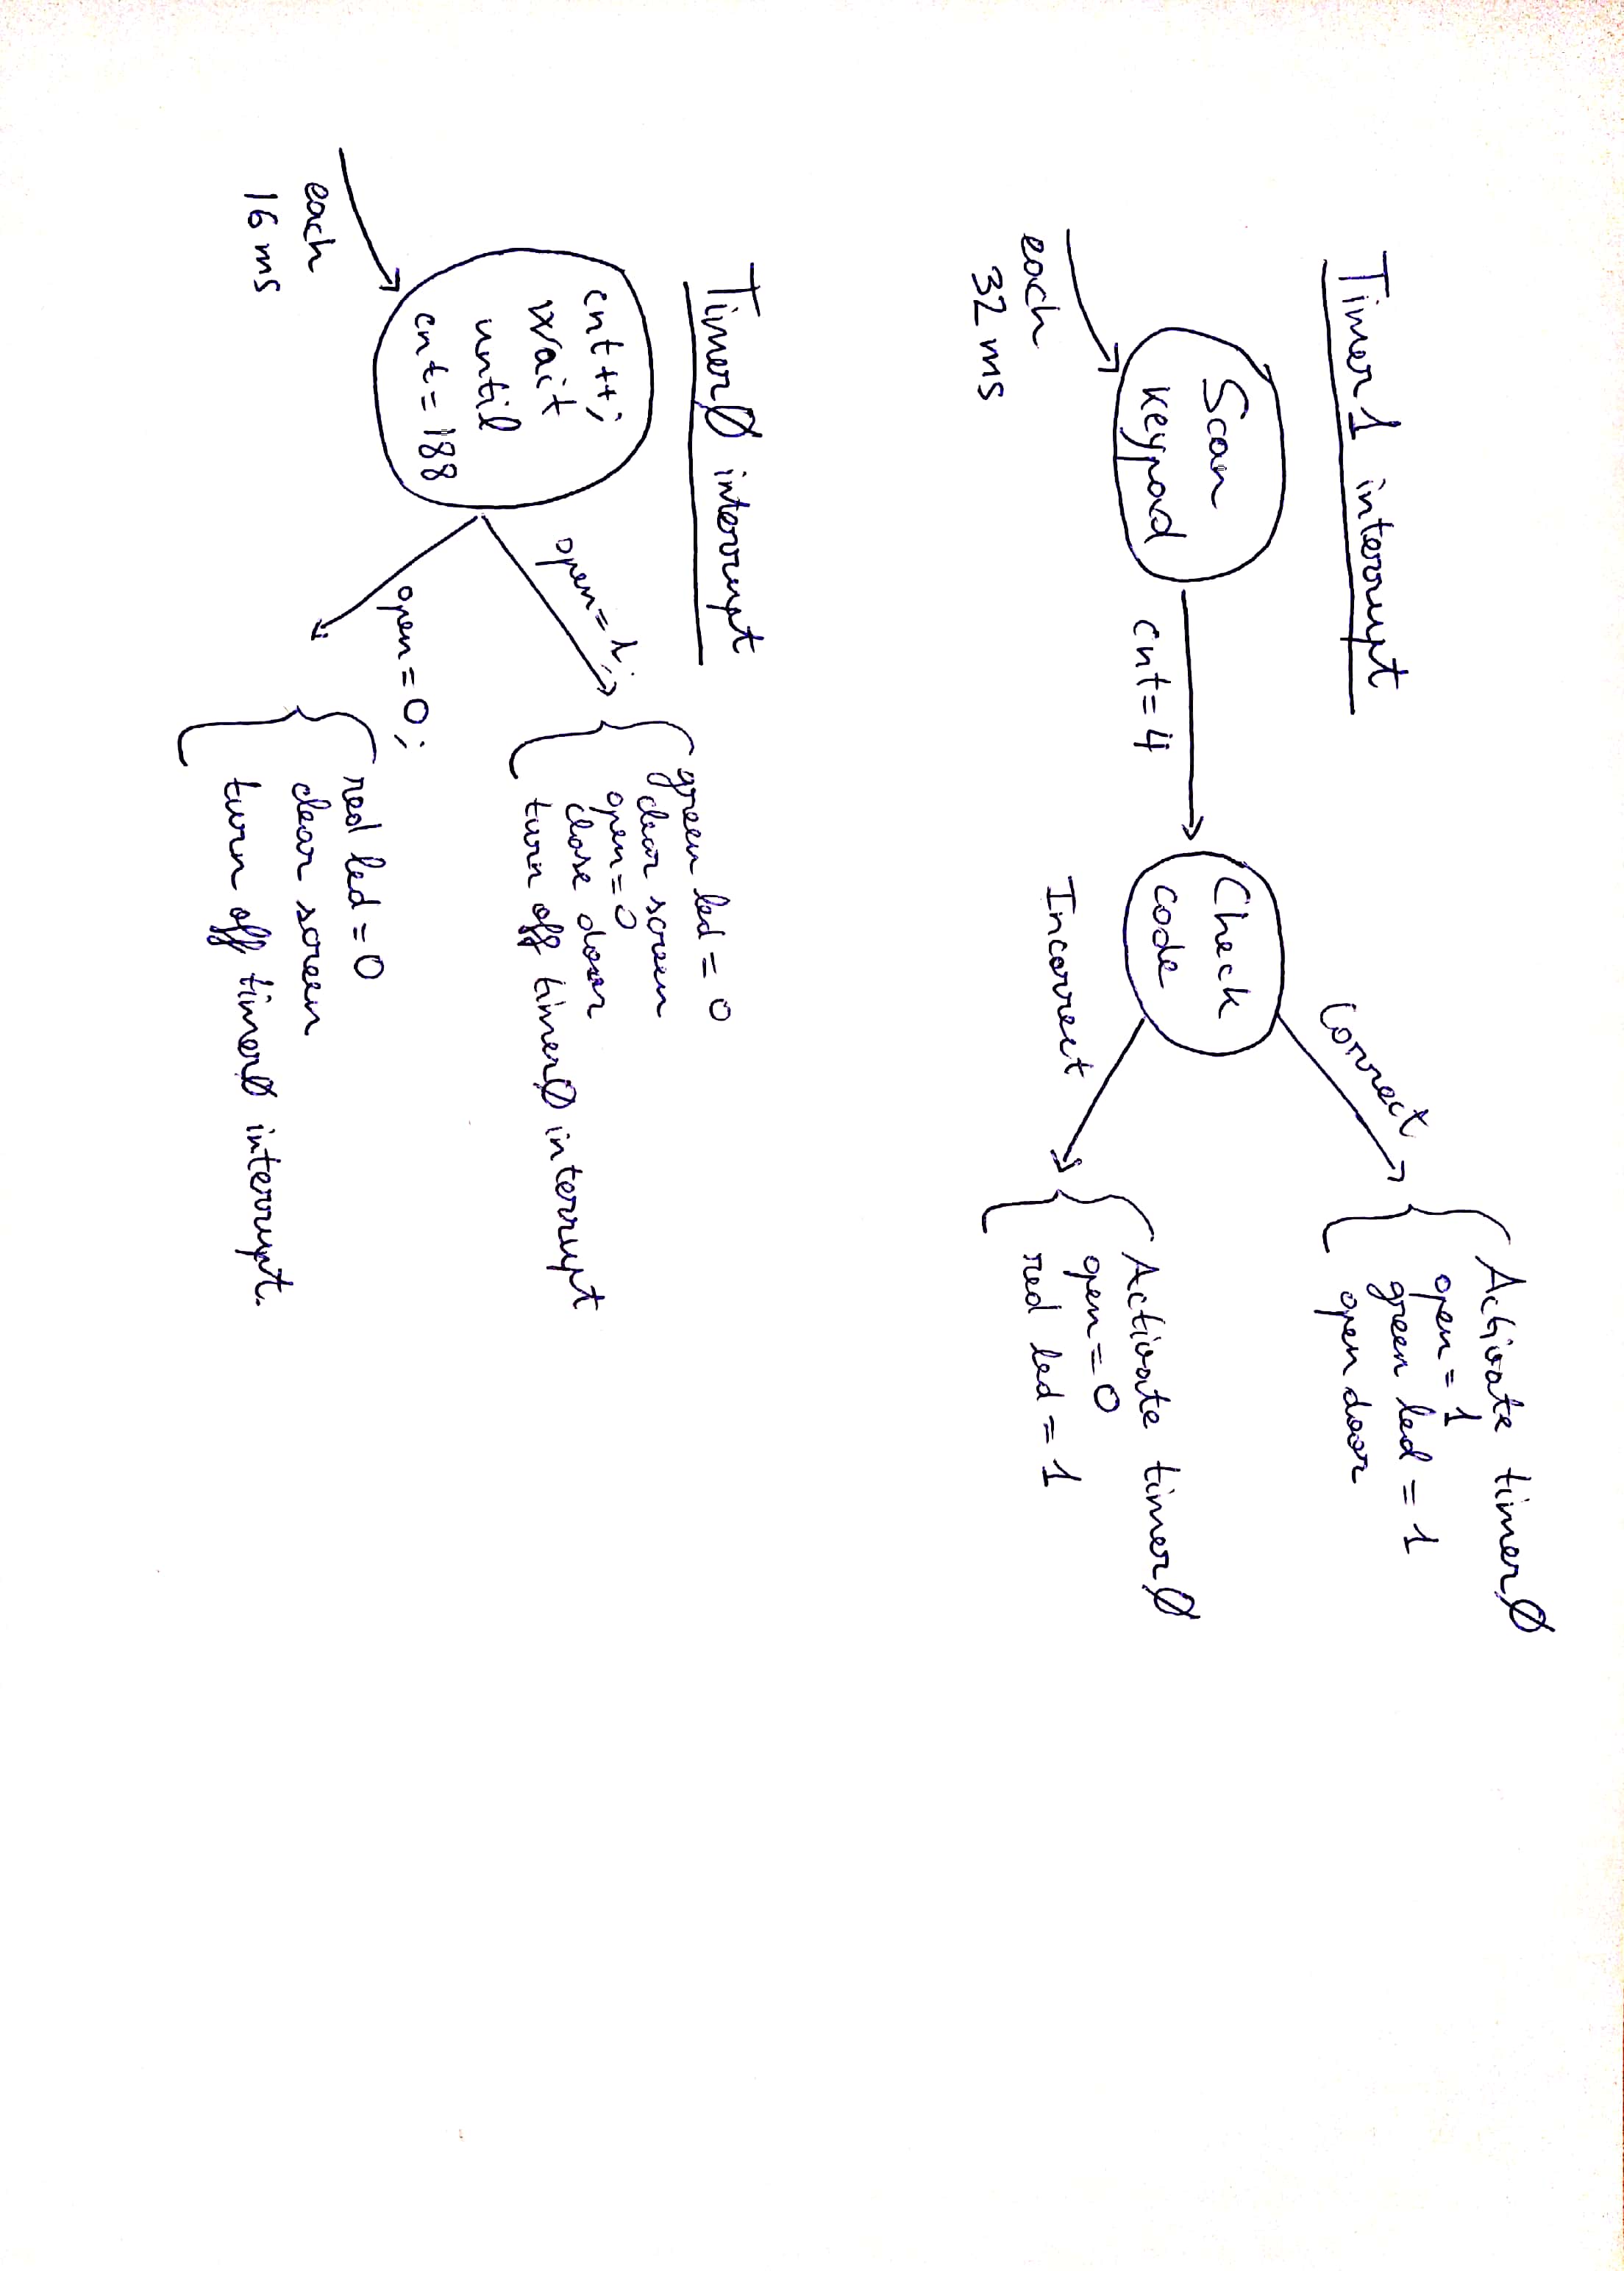 Timer 1 interrupt
Scan
keypad
each
32 ms
cnt=4
Check
code
Correct
Activate timerØ
open = 1
green led = 1
open door
Incorrect
Activate timerØ
open = 0
red led = 1
TimerØ interrupt
cnt++;
wait
until
cnt = 188
each
16 ms
open=1;
green led = 0
clear screen
open=0
close door
turn off timerØ interrupt
open = 0;
red led = 0
clear screen
turn off timerØ interrupt.